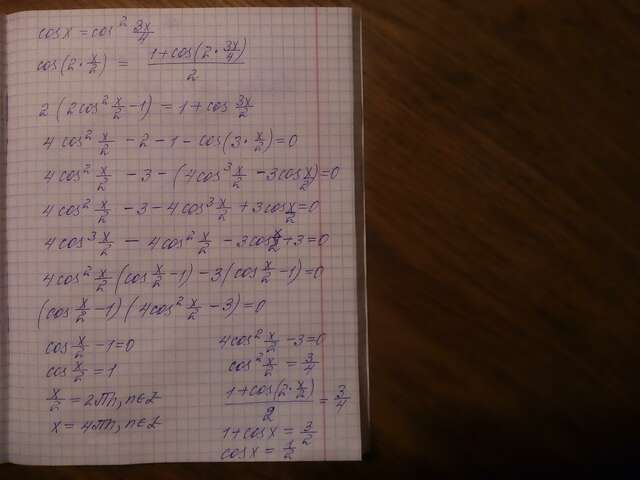 cosx = cos² 3x/4
cos(2·x/2) = (1+cos(2·3x/4))/2
2(2cos² x/2 -1) = 1+cos 3x/2
4cos² x/2 -2-1-cos(3·x/2)=0
4cos² x/2 -3-(4cos³ x/2 -3cos x/2)=0
4cos² x/2 -3-4cos³ x/2 +3cos x/2=0
4cos³ x/2 - 4cos² x/2 -3cos x/2+3=0
4cos² x/2 (cos x/2 -1)-3(cos x/2 -1)=0
(cos x/2 -1)(4cos² x/2 -3)=0
cos x/2 -1=0
cos x/2 = 1
x/2 = 2πn, n∈Z
x = 4πn, n∈Z
4cos² x/2 -3=0
cos² x/2 = 3/4
(1+cos(2·x/2))/2 = 3/4
1+cosx = 3/2
cosx = 1/2